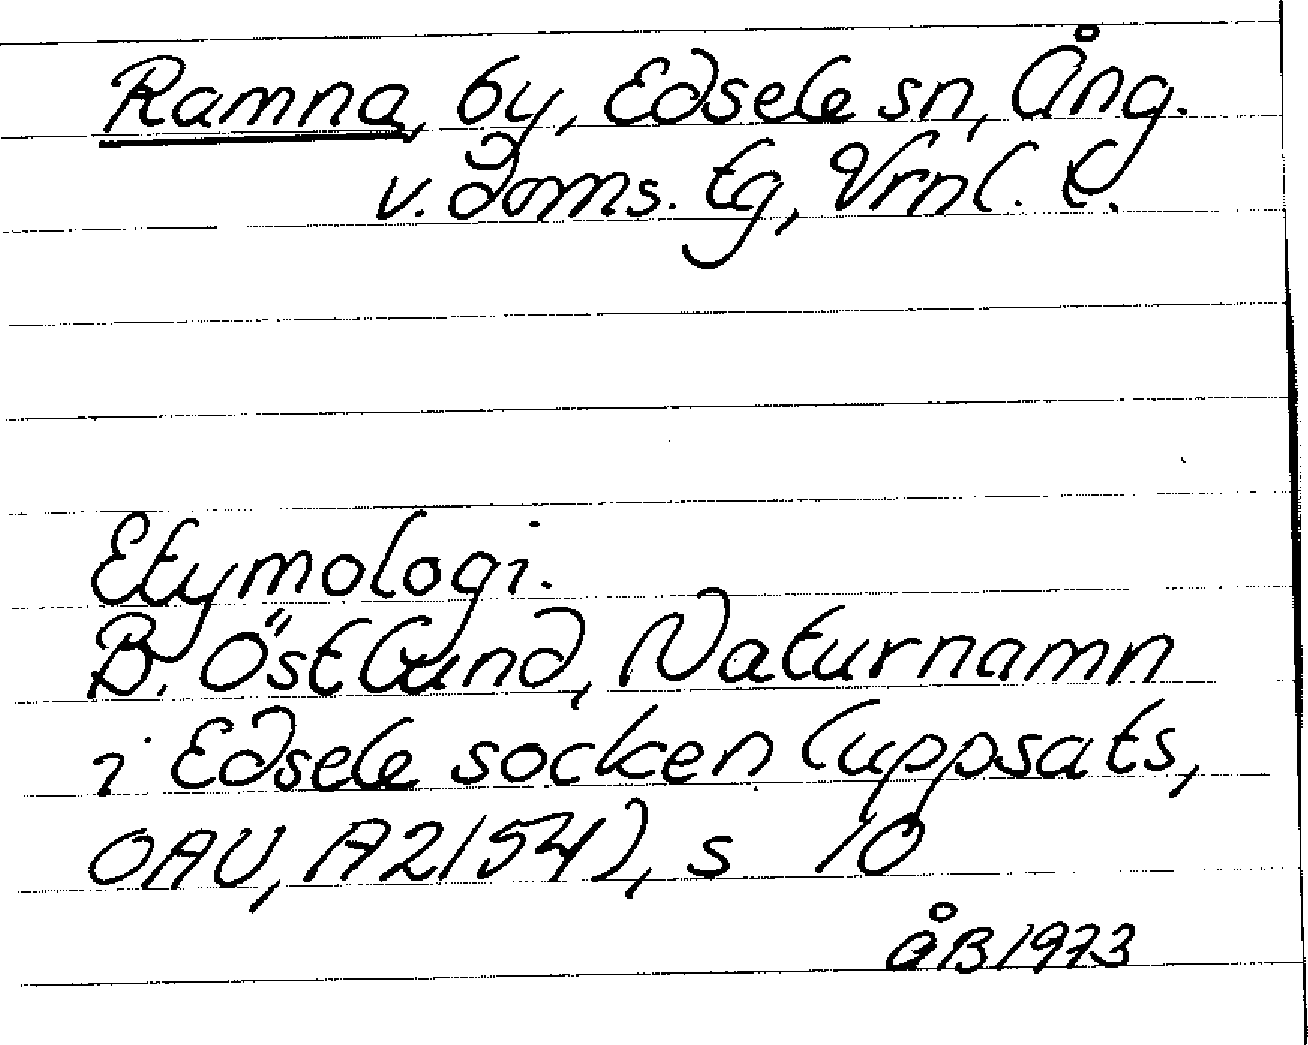 Ramna, by, Edsele sn, Ång.
v. doms. tg, Vrnl. l.
Etymologi.
B. Östlund, Naturnamn
i Edsele socken (uppsats,
OAU, A2154), s 10
åB 1973